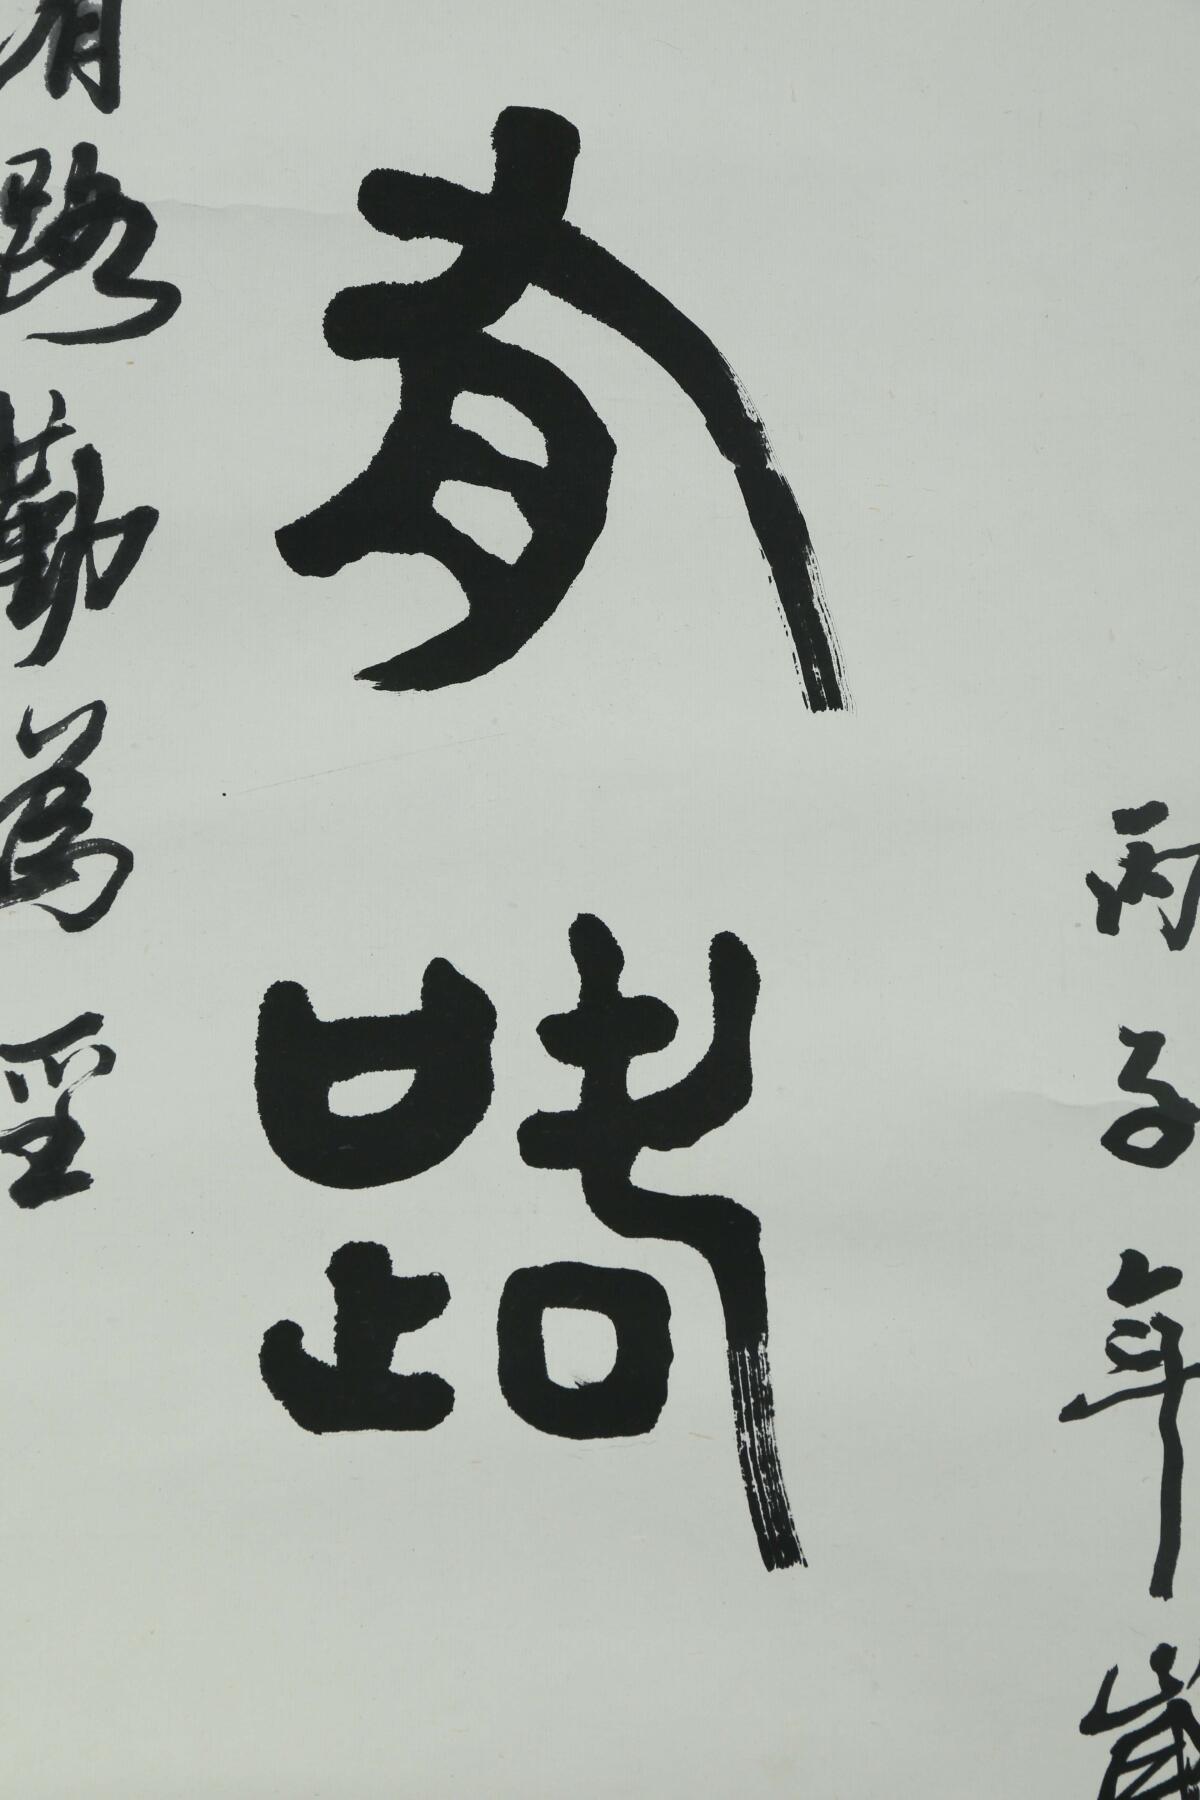 丙子年歲
有路
有路勤為徑